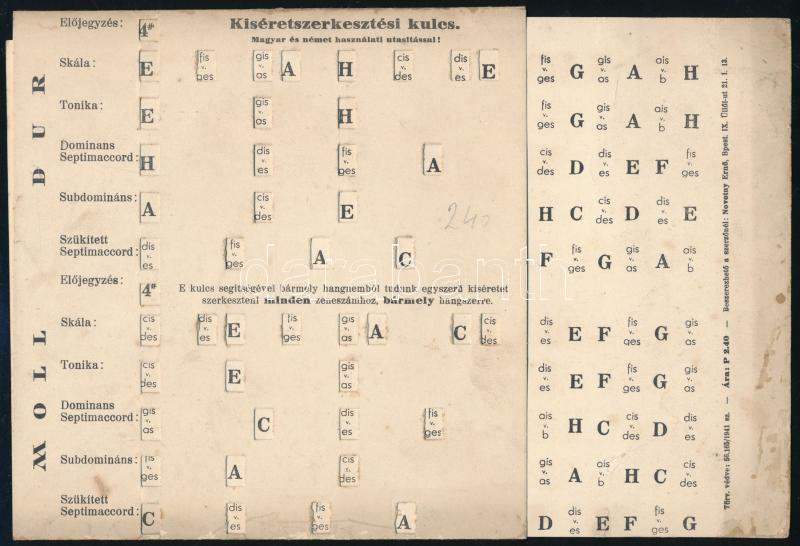 Előjegyzés: 4#
Kiséretszerkesztési kulcs.
Magyar és német használati utasítással!
DUR
Skála: E fis v. ges gis v. as A H cis v. des dis v. es E
Tonika: E gis v. as H
Dominans Septimaccord: H dis v. es fis v. ges A
Subdomináns: A cis v. des E
240
Szükített Septimaccord: dis v. es fis v. ges A C
Előjegyzés: 4#
E kulcs segítségével bármely hangnemből tudunk egyszerű kiséretet
szerkeszteni minden zeneszámhoz, bármely hangszerre.
MOLL
Skála: cis v. des dis v. es E fis v. ges gis v. as A C cis v. des
Tonika: cis v. des E gis v. as
Dominans Septimaccord: gis v. as C dis v. es fis v. ges
Subdomináns: fis v. ges A cis v. des
Szükített Septimaccord: C dis v. es fis v. ges A
fis v. ges G gis v. as A ais v. b H
fis v. ges G gis v. as A ais v. b H
cis v. des D dis v. es E F fis v. ges
H C cis v. des D dis v. es E
F fis v. ges G gis v. as A ais v. b
dis v. es E F fis v. ges G gis v. as
dis v. es E F fis v. ges G gis v. as
ais v. b H C cis v. des D dis v. es
gis v. as A ais v. b H C cis v. des
D dis v. es E F fis v. ges G
Törv. védve: 56.165/1941 sz. — Ára: P 2.40 — Beszerezhető a szerzőnél: Novotny Ernő, Bpest. IX. Üllői-ut 21. I. 13.
darabanth